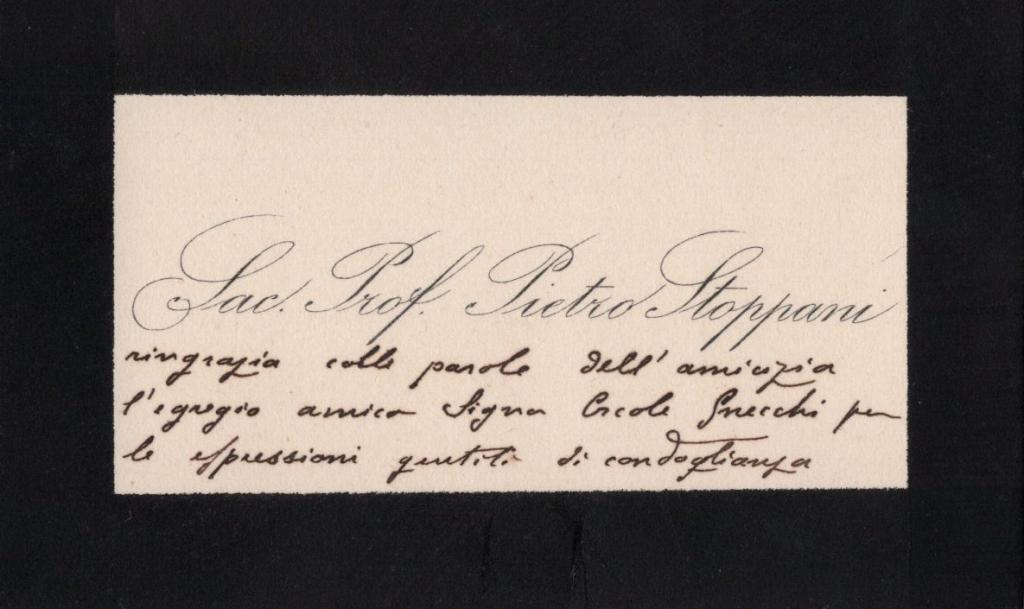 Sac. Prof. Pietro Stoppani
ringrazia colle parole dell'amicizia
l'egregio amico Signor Ercole Gnecchi per
le espressioni gentili di condoglianza